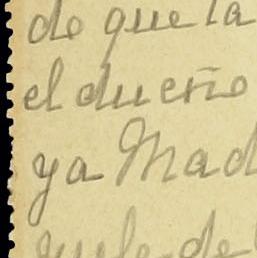 de que la
el dueño
ya Mad